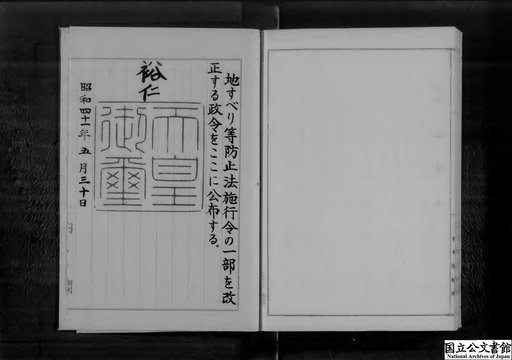 地すべり等防止法施行令の一部を改
正する政令をここに公布する。
裕仁
天皇
御璽
昭和四十一年五月三十日
国立公文書館
National Archives of Japan